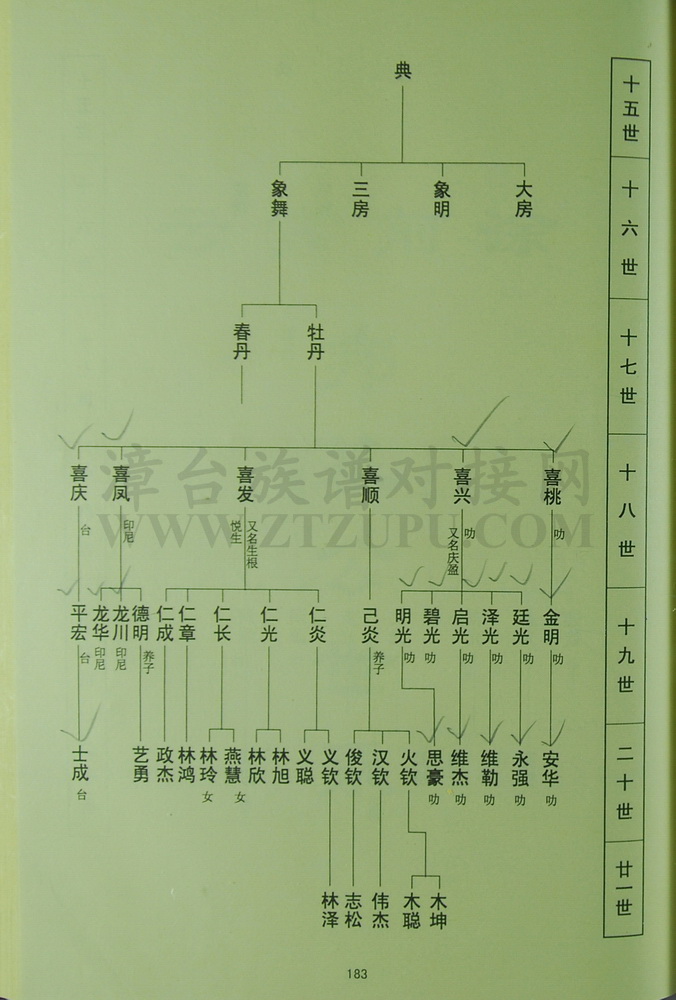 十五世
典
十六世
大房
象明
三房
象舞
十七世
牡丹
春丹
十八世
喜桃
叻
喜兴
叻
又名庆盈
喜顺
喜发
又名生根
悦生
喜凤
印尼
喜庆
台
漳台族谱对接网
WWW.ZTZUPU.COM
十九世
金明
叻
廷光
叻
泽光
叻
启光
叻
碧光
叻
明光
叻
己炎
养子
仁炎
仁光
仁长
仁章
仁成
德明
养子
龙川
印尼
龙华
印尼
平宏
台
二十世
安华
叻
永强
叻
维勒
叻
维杰
叻
思豪
叻
火钦
汉钦
俊钦
义钦
义聪
林旭
林欣
燕慧
女
林玲
女
林鸿
政杰
艺勇
士成
台
廿一世
木坤
木聪
伟杰
志松
林泽
183